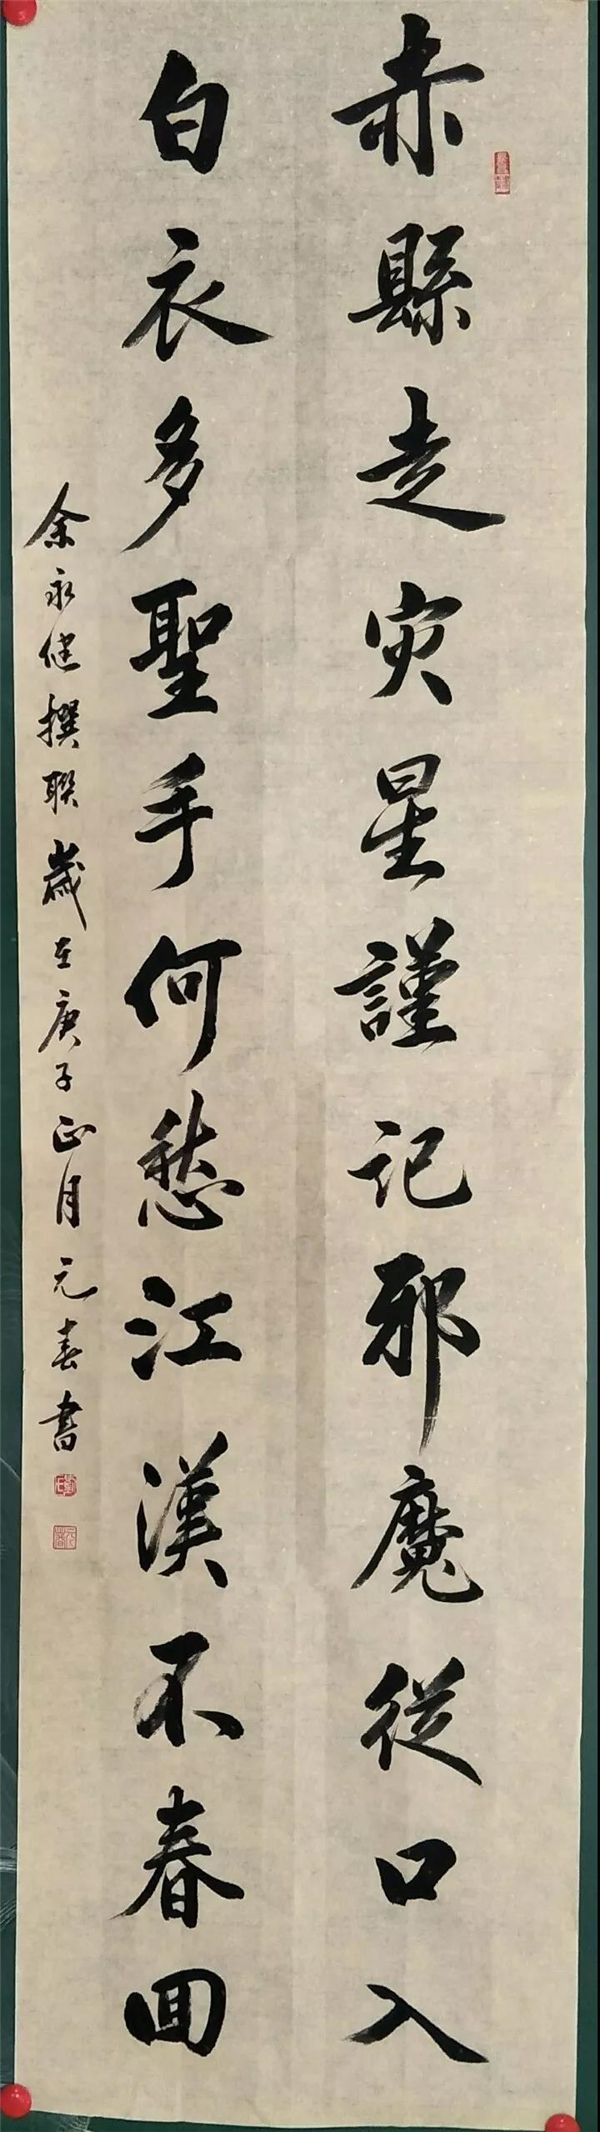 赤縣走灾星謹記邪魔從口入
白衣多聖手何愁江漢不春回
余永健撰聯歲在庚子正月元春書